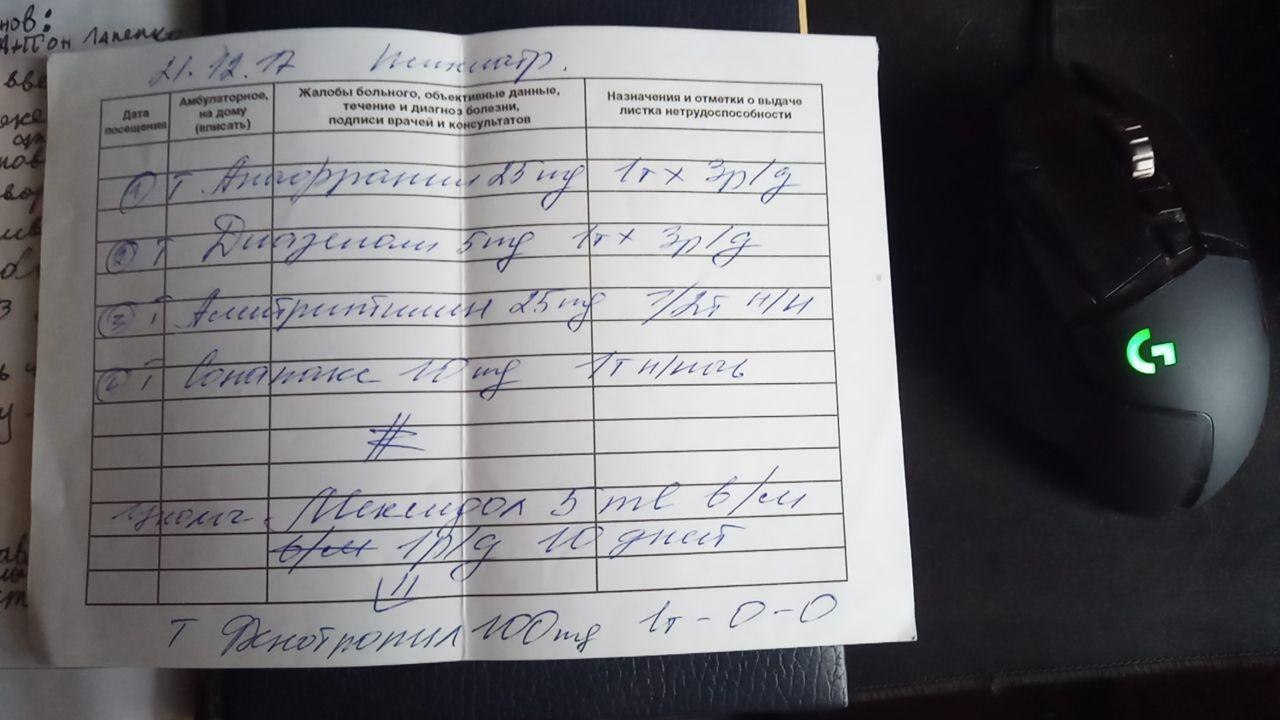 нов:
Антон Лапенко
21.12.17 Психиатр.
Дата посещения
Амбулаторное, на дому (вписать)
Жалобы больного, объективные данные, течение и диагноз болезни, подписи врачей и консультатов
Назначения и отметки о выдаче листка нетрудоспособности
① Т Анафранил 25 mg 1т х 3р/д
② Т Диазепам 5 mg 1т х 3р/д
③ Т Амитриптилин 25 mg 1/2т н/н
Т Сонапакс 10 mg 1т н/ночь
#
Мексидол 5 ml в/м
в/м 1р/д 10 дней
Т Фенотропил 100 mg 1т - 0 - 0
G